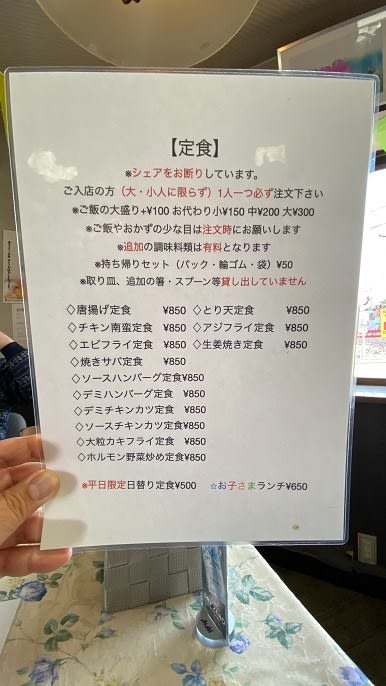 【定食】
※シェアをお断りしています。
ご入店の方（大・小人に限らず）1人一つ必ず注文下さい
※ご飯の大盛り+¥100 お代わり小¥150 中¥200 大¥300
※ご飯やおかずの少な目は注文時にお願いします
※追加の調味料類は有料となります
※持ち帰りセット（パック・輪ゴム・袋）¥50
※取り皿、追加の箸・スプーン等貸し出していません
◇唐揚げ定食 ¥850 ◇とり天定食 ¥850
◇チキン南蛮定食 ¥850 ◇アジフライ定食 ¥850
◇エビフライ定食 ¥850 ◇生姜焼き定食 ¥850
◇焼きサバ定食 ¥850
◇ソースハンバーグ定食¥850
◇デミハンバーグ定食 ¥850
◇デミチキンカツ定食 ¥850
◇ソースチキンカツ定食¥850
◇大粒カキフライ定食 ¥850
◇ホルモン野菜炒め定食¥850
※平日限定日替り定食¥500 ☆お子さまランチ¥650
Asahi